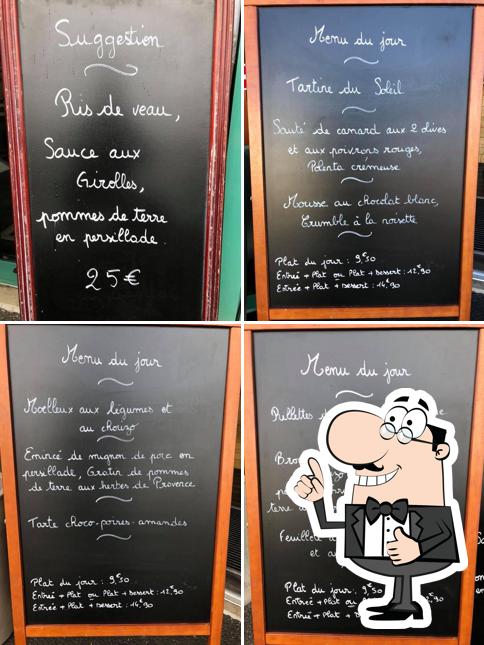 Suggestion
Ris de veau,
Sauce aux
Girolles,
pommes de terre
en persillade.
25€
Menu du jour
Tartine du Soleil
Sauté de canard aux 2 olives
et aux poivrons rouges,
Polenta crémeuse
Mousse au chocolat blanc,
Crumble à la noisette
Plat du jour : 9€50
Entrée + Plat ou Plat + Dessert : 12€90
Entrée + Plat + Dessert : 14€90
Menu du jour
Moelleux aux légumes et
au chorizo
Emincé de mignon de porc en
persillade, Gratin de pommes
de terre aux herbes de Provence
Tarte choco-poires-amandes
Plat du jour : 9€50
Entrée + Plat ou Plat + Dessert : 12€90
Entrée + Plat + Dessert : 14€90
Menu du jour
Rillettes
Feuilleté
et
Plat du jour : 9€50
Entrée + Plat ou
Entrée + Plat +